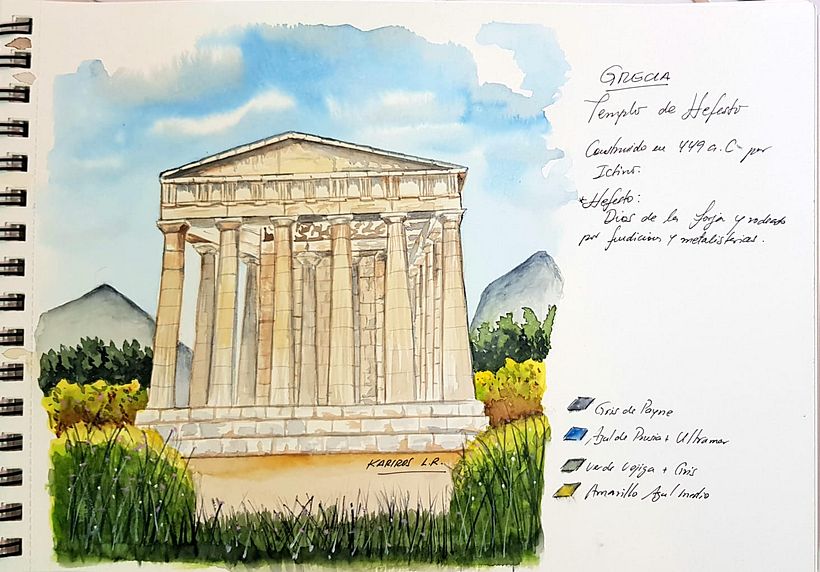 GRECIA
Templo de Hefesto
Construido en 449 a.C- por
Ictino.
*Hefesto:
Dios de la forja y rodeado
por fundicion y metalisterias.
Gris de Payne
Azul de Prusia + Ultramar
Verde Vejiga + Gris
Amarillo Azul
KARIROS L.R.